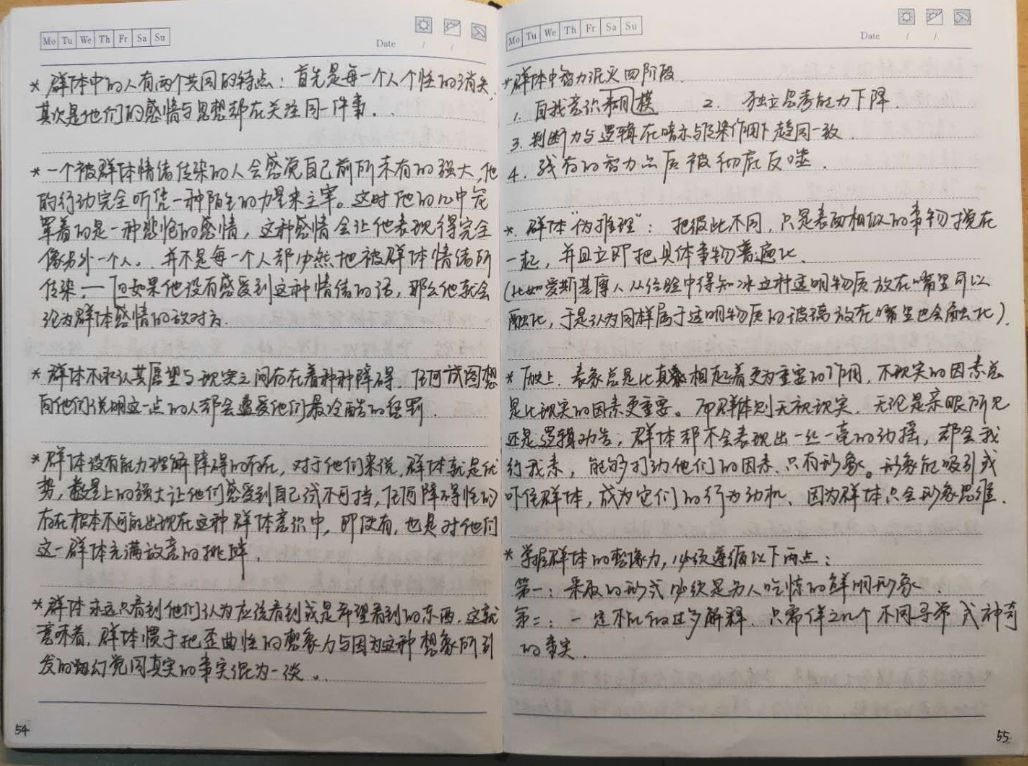 Mo Tu We Th Fr Sa Su
Date / /
* 群体中的人有两个共同的特点：首先是每一个人个性的消失，
其次是他们的感情与思想都在关注同一件事．
* 一个被群体情绪传染的人会感觉自己前所未有的强大，他
的行动完全听凭一种陌生的力量来主宰。这时他的心中笼
罩着的是一种悲怆的感情，这种感情会让他表现得完全
像另外一个人。并不是每一个人都必然地被群体情绪所
传染．— 但如果他没有感受到这种情绪的话，那么他就会
沦为群体感情的敌对方．
* 群体不承认其愿望与现实之间存在着种种障碍．任何试图想
向他们说明这一点的人都会遭受他们最冷酷的
* 群体没有能力理解障碍的存在，对于他们来说，群体就是优
势，数量上的强大让他们感受到自己试不可挡，任何障碍性的
存在根本不可能出现在这种群体意识中，即使有，也是对他们
这一群体充满敌意的挑衅．
* 群体永远只看到他们认为应该看到或是希望看到的东西．这就
意味着，群体惯于把歪曲性的想象力与因为这种想象所引
发的幻觉同真实的事实混为一谈．
54
Mo Tu We Th Fr Sa Su
Date / /
* 群体中智力泯灭四阶段．
1. 自我意识 2. 独立思考能力下降
3. 判断力与逻辑在暗示与作用下趋同一致
4. 残存的智力最后被彻底反噬
* 群体“伪推理”：把彼此不同，只是表面相似的事物搅在
一起，并且立即把具体事物普遍化．
（比如爱斯基摩人从经验中得知冰这种透明物质放在嘴里可以
融化，于是认为同样属于透明物质的玻璃放在嘴里也会融化）．
* 历史上．表象总是比真相起着更为重要的作用，不现实的因素总
是比现实的因素更重要。而群体则无视现实．无论是亲眼所见
还是逻辑劝告，群体都不会表现出一丝一毫的动摇，都会我
行我素，能够打动他们的因素．只有形象。形象能吸引或
吓住群体，成为它们的行为动机．因为群体只会形象思维．
* 掌握群体的想象力，必须遵循以下两点：
第一：采取的形式必须是为人吃惊的鲜明形象．
第二：一定不能做过多解释．只需伴之几个不同寻常或神奇
的事实．
55